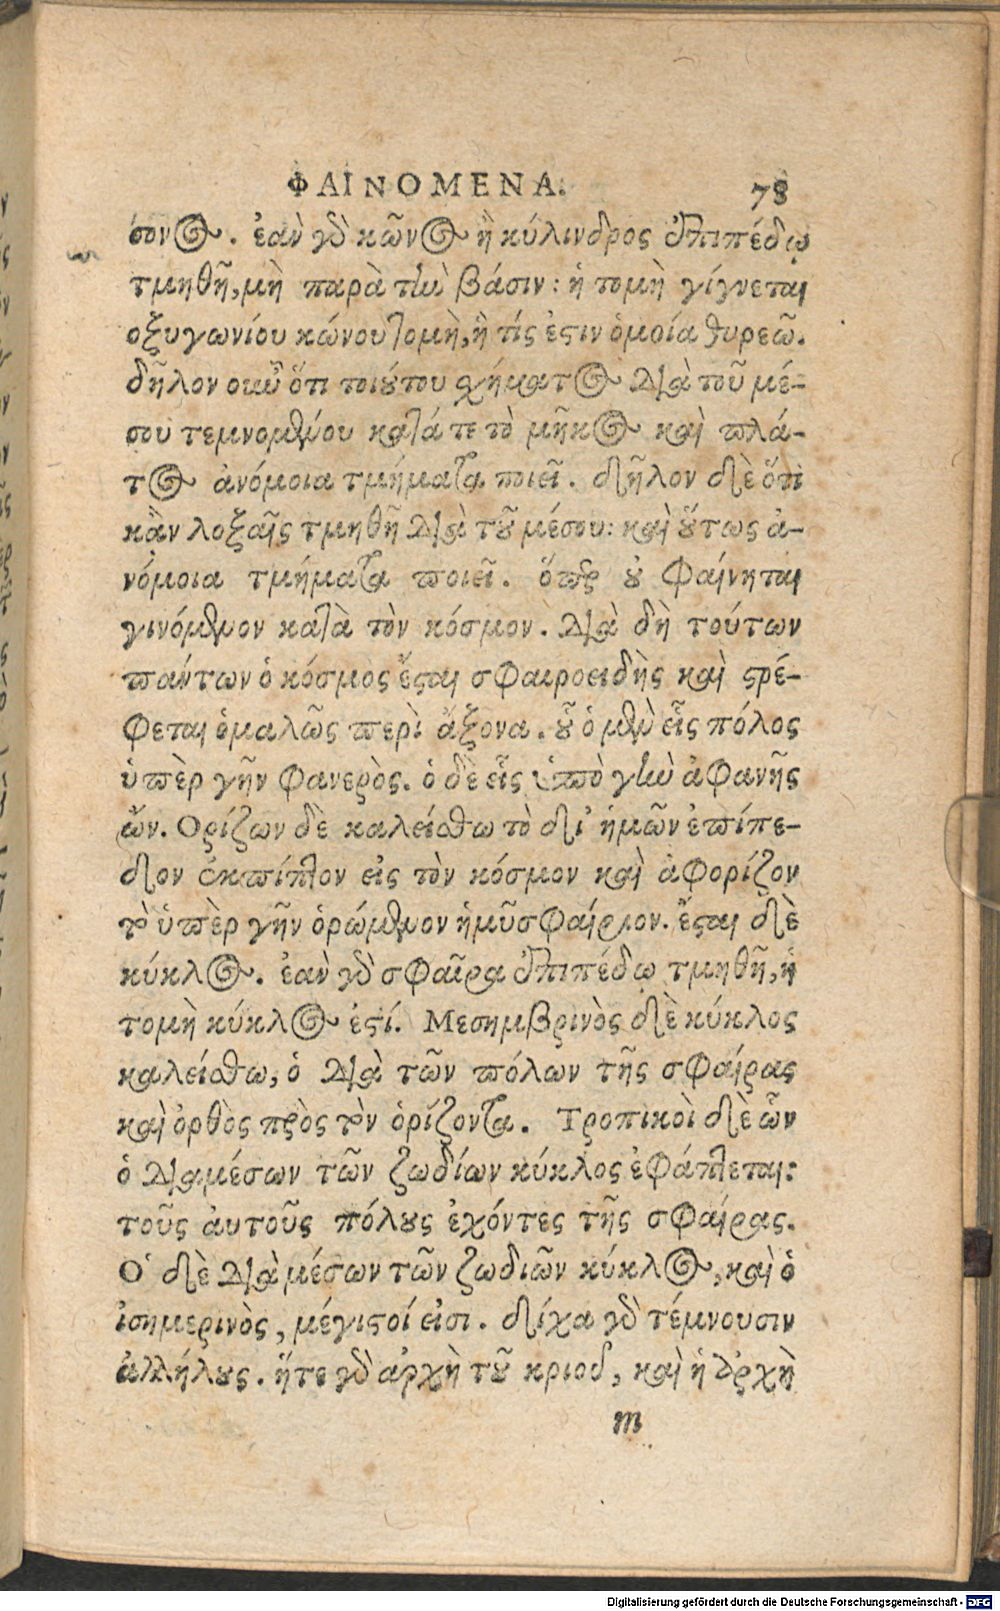 ΦΑΙΝΟΜΕΝΑ. 78
σονος. ἐὰν γὸ κῶνος ἢ κύλινδρος ἐπιπέδῳ
τμηθῇ, μὴ παρὰ τὴν βάσιν: ἡ τομὴ γίγνεται
οξυγωνίου κώνου τομὴ, ἥ τίς ἐστιν ὁμοία θυρεῶ.
δῆλον οὖν ὅτι τοιούτου σχήματος διὰ τοῦ μέ-
σου τεμνομένου κατά τε τὸ μῆκος καὶ πλά-
τος ἀνόμοια τμήματα ποιεῖ. δῆλον δὲ ὅτι
κἂν λοξαῖς τμηθῇ διὰ τοῦ μέσου: καὶ οὕτως ἀ-
νόμοια τμήματα ποιεῖ. ὅπερ οὐ φαίνηται
γινόμενον κατὰ τὸν κόσμον. διὰ δὴ τούτων
πάντων ὁ κόσμος ἔσται σφαιροειδὴς καὶ στρέ-
φεται ὁμαλῶς περὶ ἄξονα. οὗ ὁ μὲν εἷς πόλος
ὑπὲρ γῆν φανερὸς. ὁ δὲ εἷς ὑπὸ γὴν ἀφανῆς
ὤν. Ορίζων δὲ καλείσθω τὸ δι' ἡμῶν ἐπίπε-
δον ἐκπίπτον εἰς τὸν κόσμον καὶ ἀφορίζον
τὸ ὑπὲρ γῆν ὁρώμενον ἡμῦσφαίριον. ἔσται δὲ
κύκλος. ἐὰν γὸ σφαῖρα ἐπιπέδῳ τμηθῇ, ἡ
τομὴ κύκλος ἐστί. Μεσημβρινὸς δὲ κύκλος
καλείσθω, ὁ διὰ τῶν πόλων τῆς σφαίρας
καὶ ὀρθὸς πρὸς τὸν ὁρίζοντα. Τροπικοὶ δὲ ὧν
ὁ διαμέσων τῶν ζωδίων κύκλος ἐφάπτεται:
τοῦς ἀυτοῦς πόλους ἐχόντες τῆς σφαίρας.
Ὁ δὲ διὰ μέσων τῶν ζωδιῶν κύκλος, καὶ ὁ
ἰσημερινὸς, μέγιστοί εἰσι. δίχα γὸ τέμνουσιν
ἀλλήλους. ἥτε γὸ ἀρχὴ τοῦ κριοῦ, καὶ ἡ ἀρχὴ
m
Digitalisierung gefördert durch die Deutsche Forschungsgemeinschaft - DFG